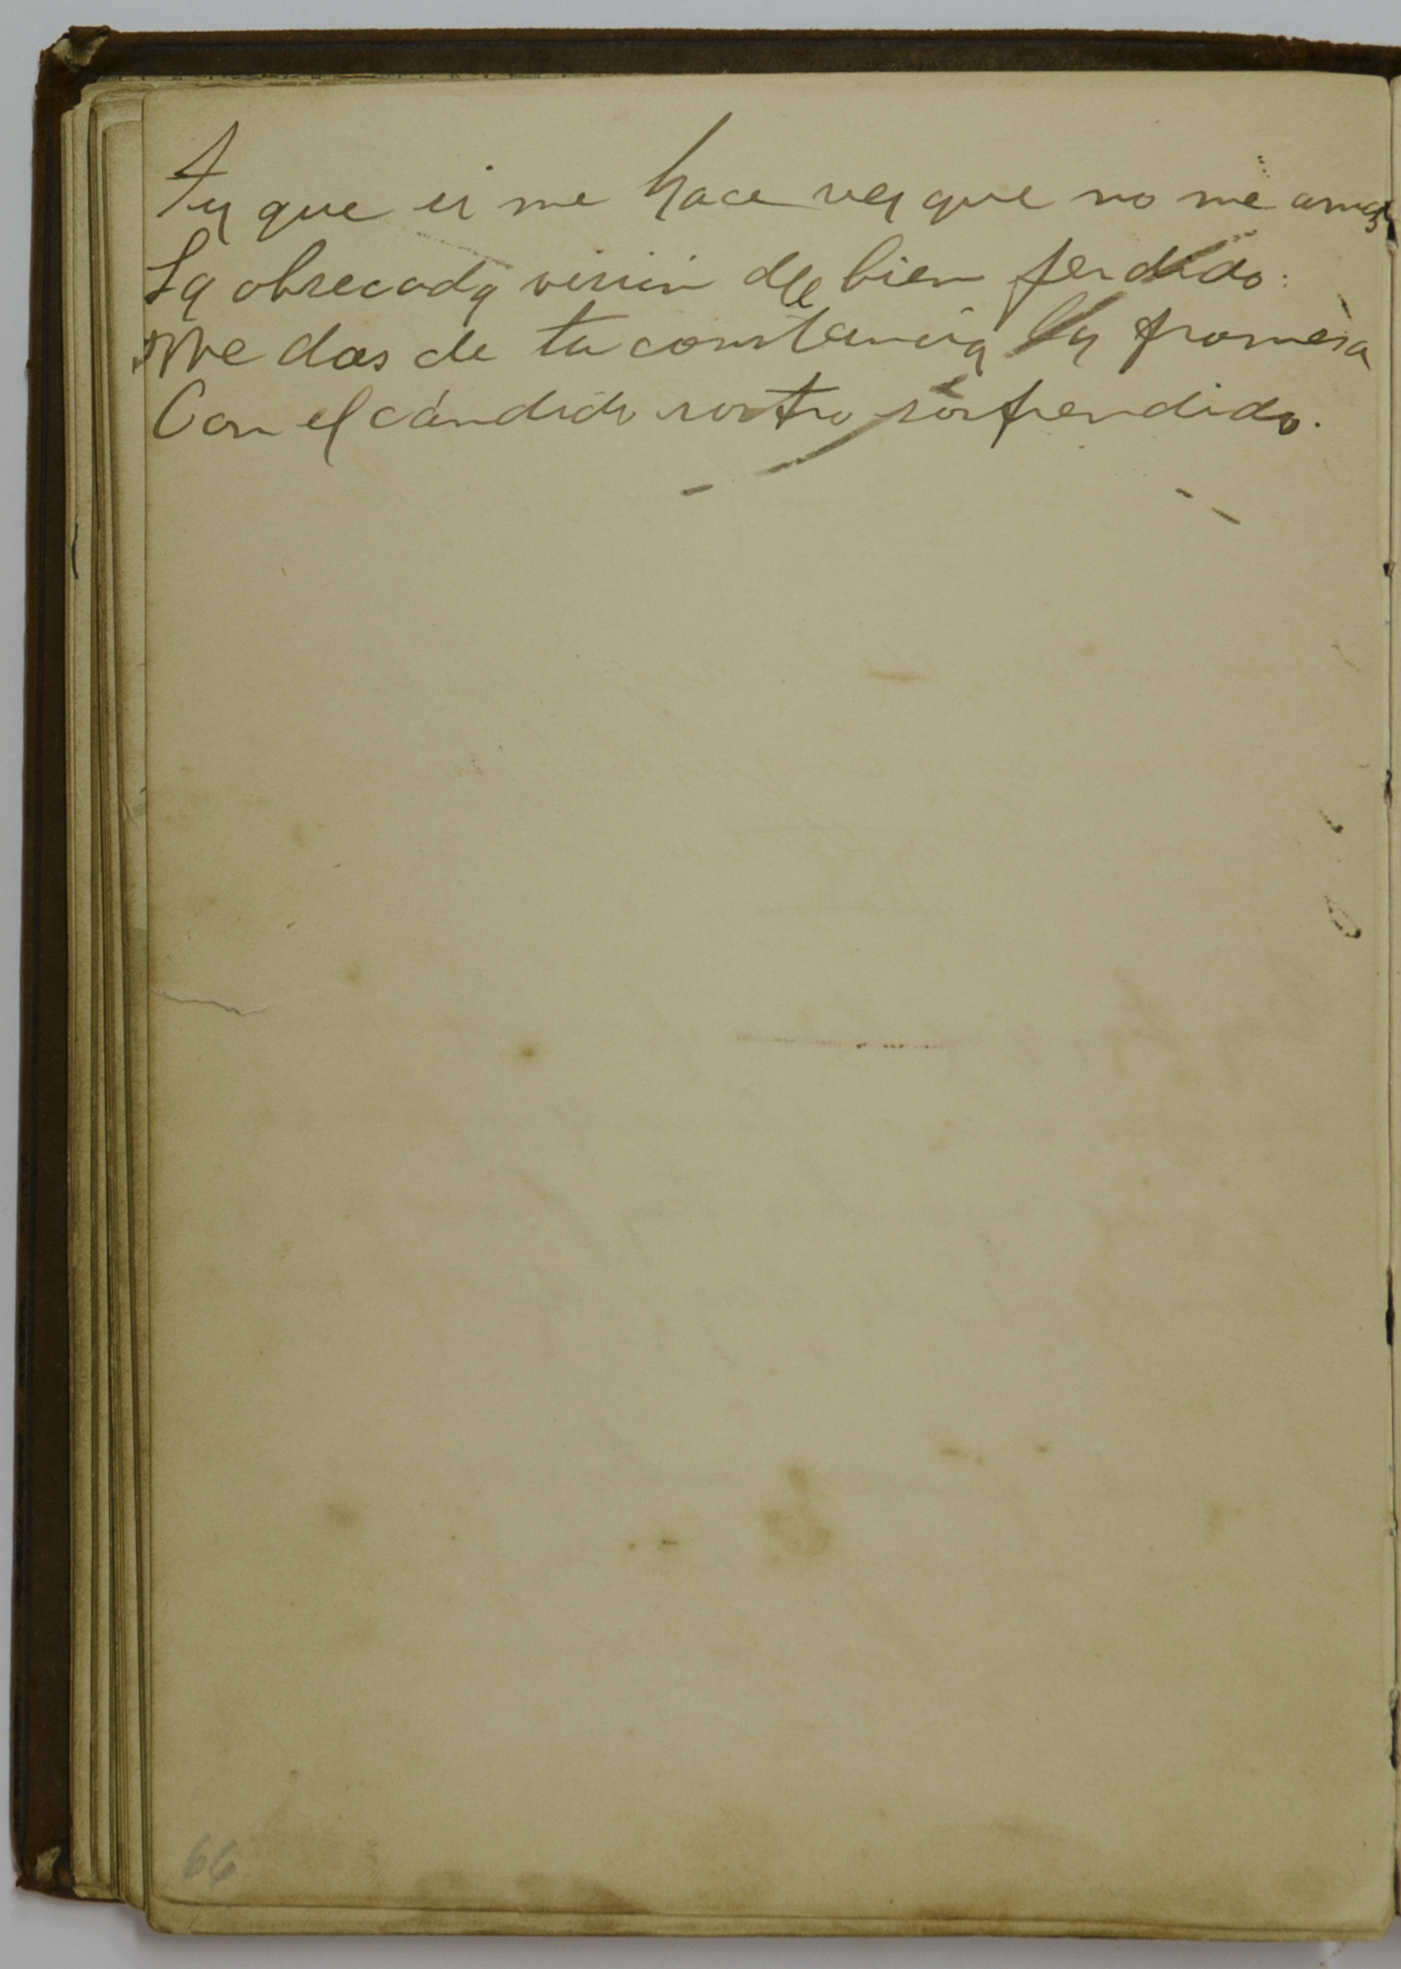 que si me hace ver que no me amas
La obsecada visión del bien perdido:
Me das de tu constancia la promesa
Con el cándido rostro sorprendido.
66